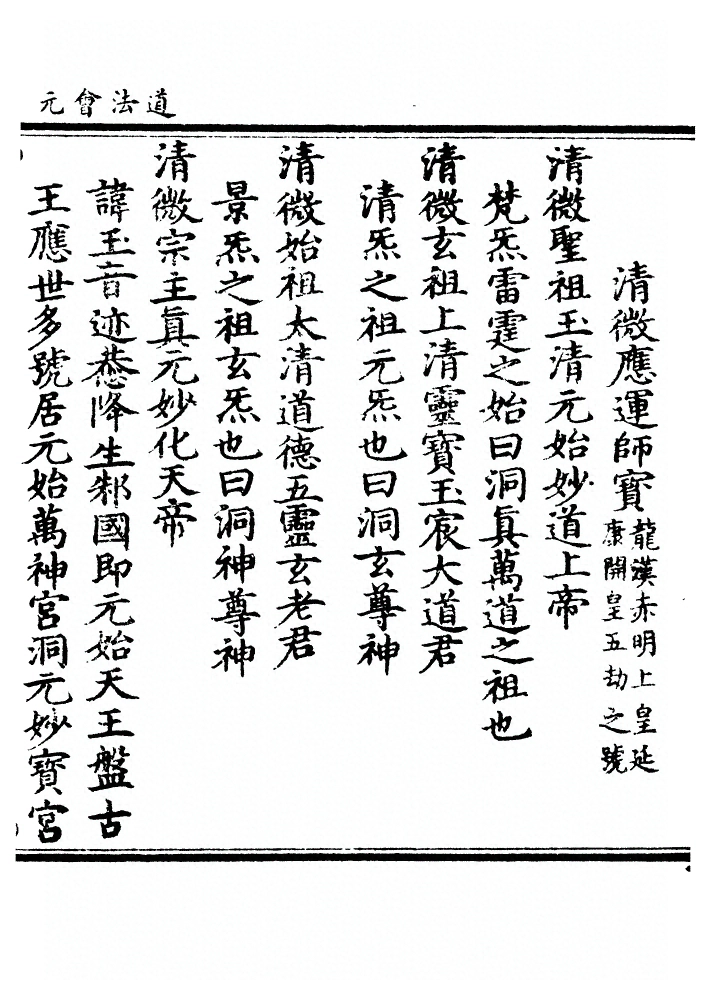 道法會元
清微應運師寶 龍漢赤明上皇延
康開皇五劫之號
清微聖祖玉清元始妙道上帝
梵炁雷霆之始曰洞眞萬道之祖也
清微玄祖上清靈寶玉宸大道君
清炁之祖元炁也曰洞玄尊神
清微始祖太清道德五靈玄老君
景炁之祖玄炁也曰洞神尊神
清微宗主眞元妙化天帝
諱玉音迹恭降生郣國即元始天王盤古
王應世多號居元始萬神宮洞元妙寶宮